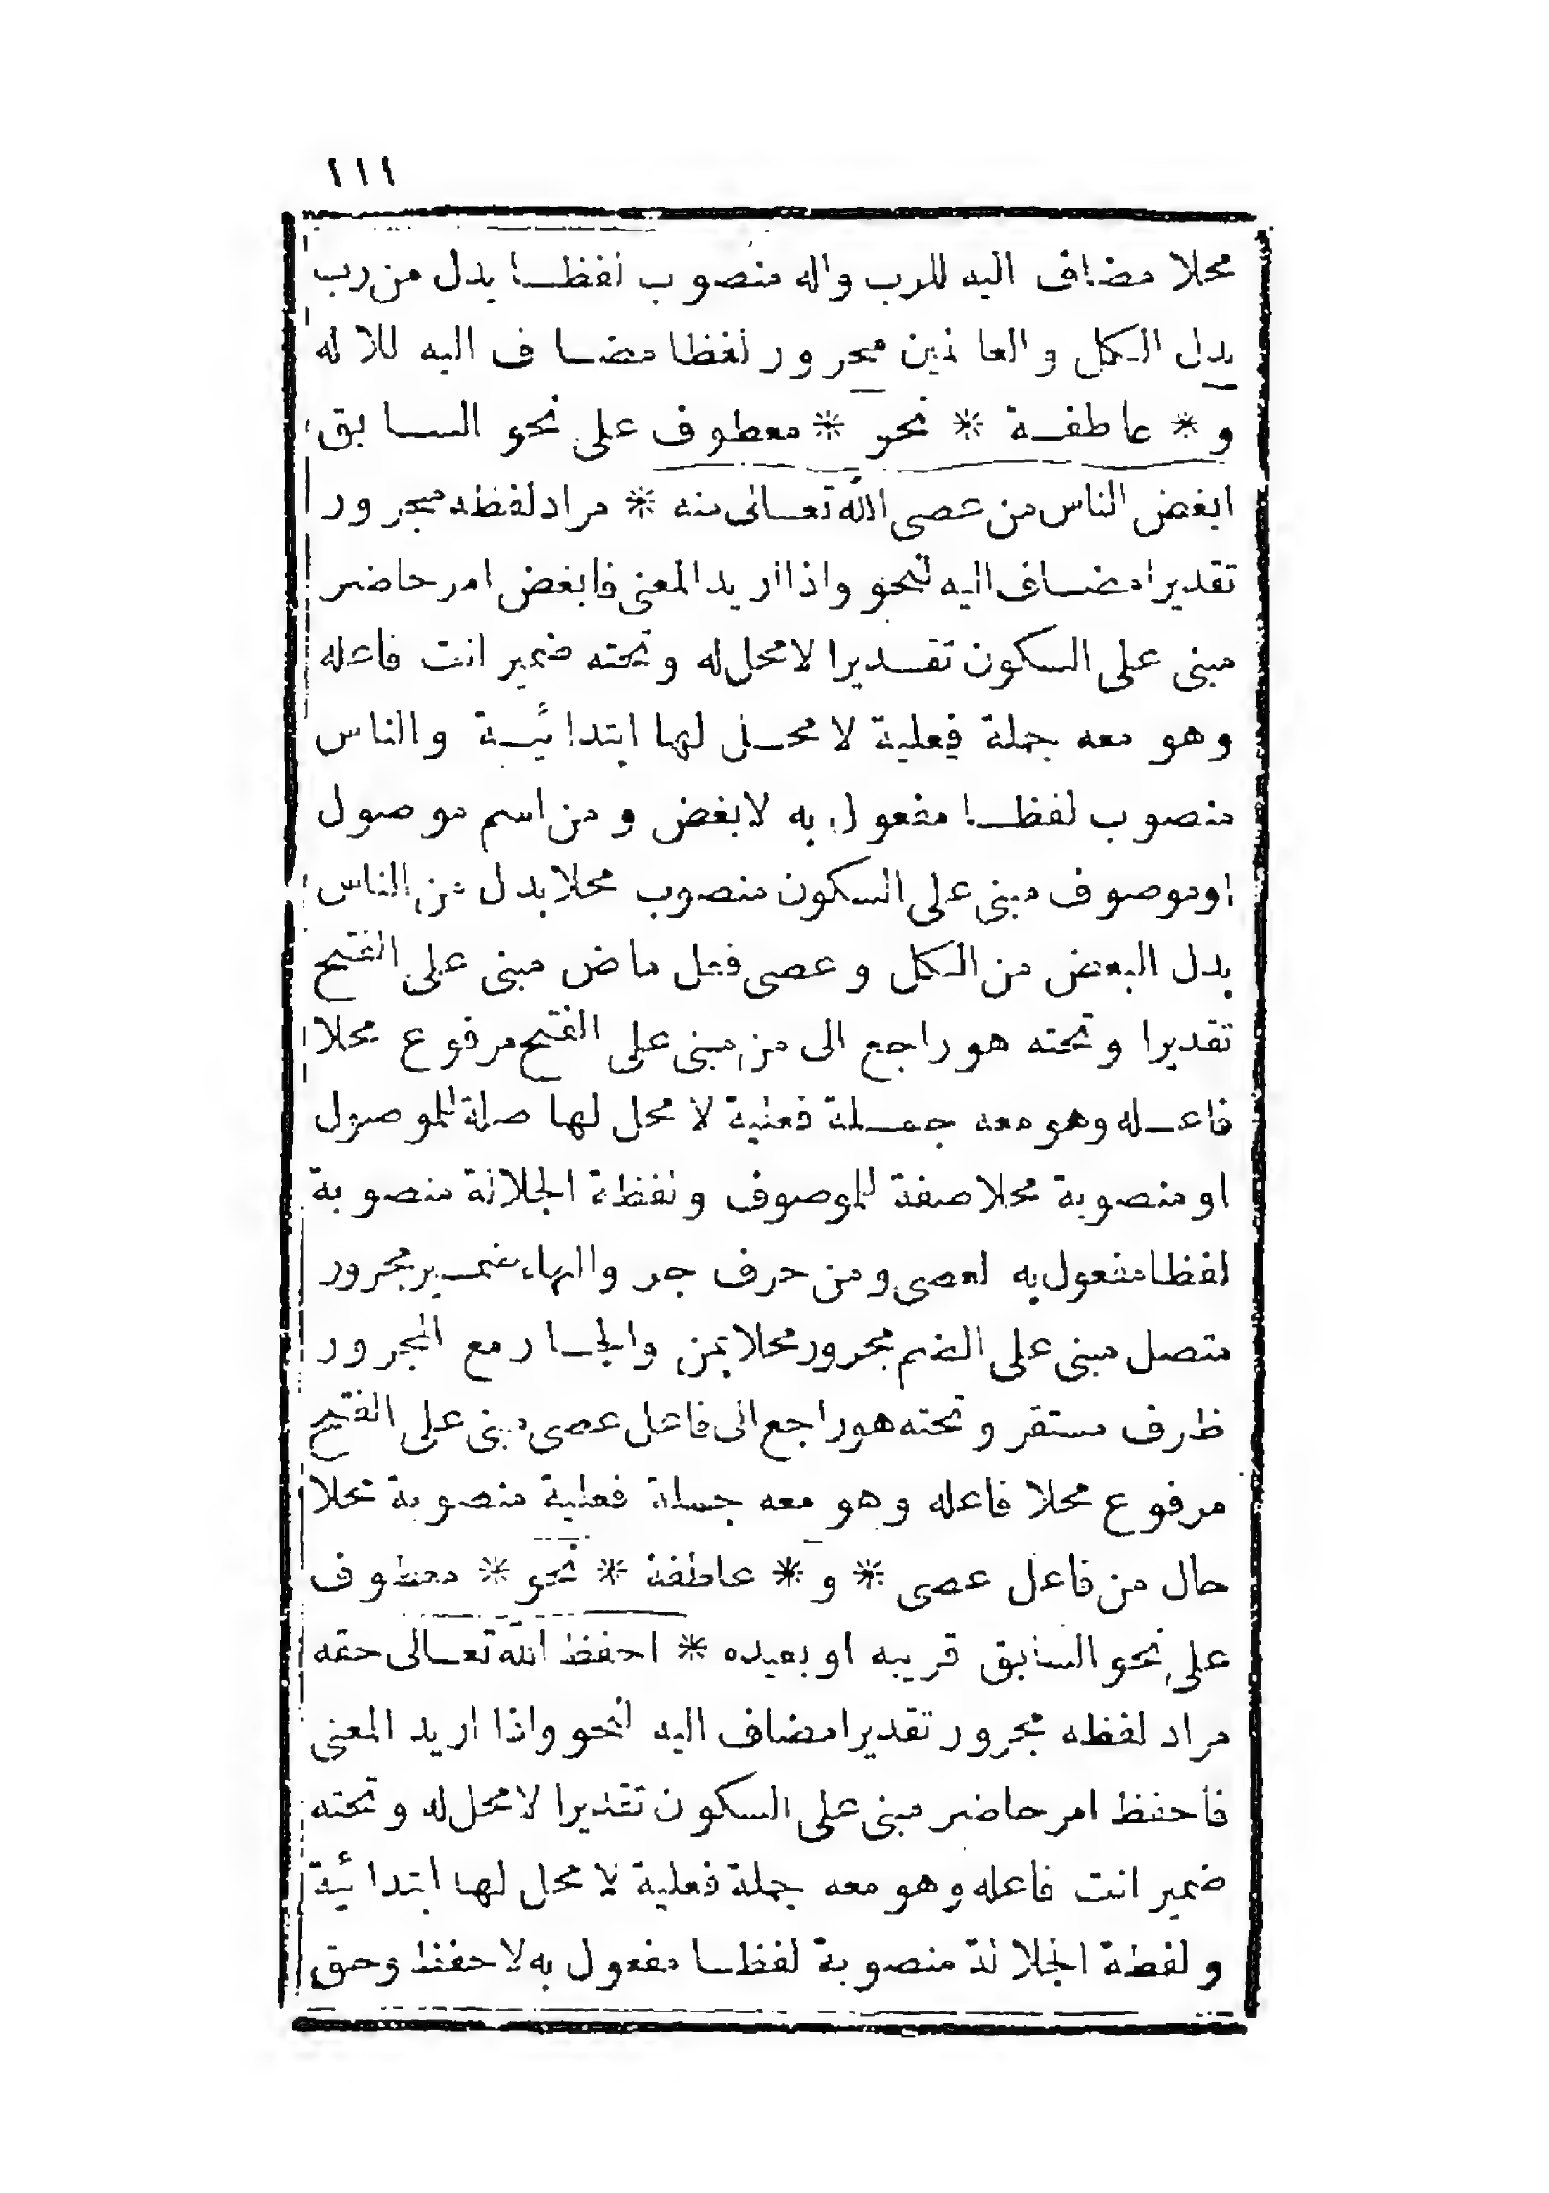 ١١١
محلا مضاف اليه للرب واله منصوب لفظا بدل من رب
بدل الكل والعالمين مجرور لفظا مضاف اليه للاله
و * عاطفة * نحو * معطوف على نحو السابق
ابغض الناس من عصى الله تعالى منه * مراد لفظه مجرور
تقديرا مضاف اليه لنحو واذا اريد المعنى فابغض امر حاضر
مبنى على السكون تقديرا لا محل له وتحته ضمير انت فاعله
وهو معه جملة فعلية لا محل لها ابتدائية والناس
منصوب لفظا مفعول به لابغض ومن اسم موصول
اوموصوف مبنى على السكون منصوب محلا بدل من الناس
بدل البعض من الكل وعصى فعل ماض مبنى على الفتح
تقديرا وتحته هو راجع الى من مبنى على الفتح مرفوع محلا
فاعله وهو معه جملة فعلية لا محل لها صلة للموصول
او منصوبة محلا صفة للموصوف ولفظة الجلالة منصوبة
لفظا مفعول به لعصى ومن حرف جر والهاء ضمير مجرور
متصل مبنى على الضم مجرور محلا بمن والجار مع المجرور
ظرف مستقر وتحته هو راجع الى فاعل عصى مبنى على الفتح
مرفوع محلا فاعله وهو معه جملة فعلية منصوبة محلا
حال من فاعل عصى * و * عاطفة * نحو * معطوف
على نحو السابق قريبه او بعيده * احفظ الله تعالى حقه
مراد لفظه مجرور تقديرا مضاف اليه لنحو واذا اريد المعنى
فاحفظ امر حاضر مبنى على السكون تقديرا لا محل له وتحته
ضمير انت فاعله وهو معه جملة فعلية لا محل لها ابتدائية
ولفظة الجلالة منصوبة لفظا مفعول به لاحفظ وحق